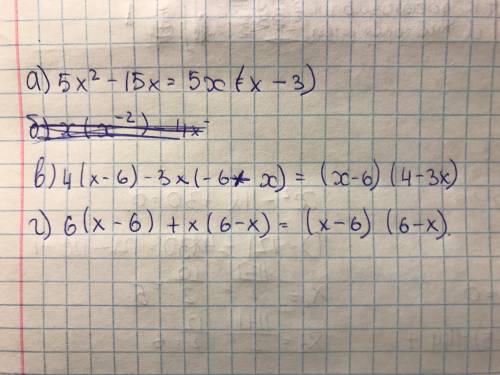 а) 5x² - 15x = 5x (x - 3)
в) 4(x-6) - 3x(-6+x) = (x-6) (4-3x)
г) 6(x-6) + x(6-x) = (x-6) (6-x).